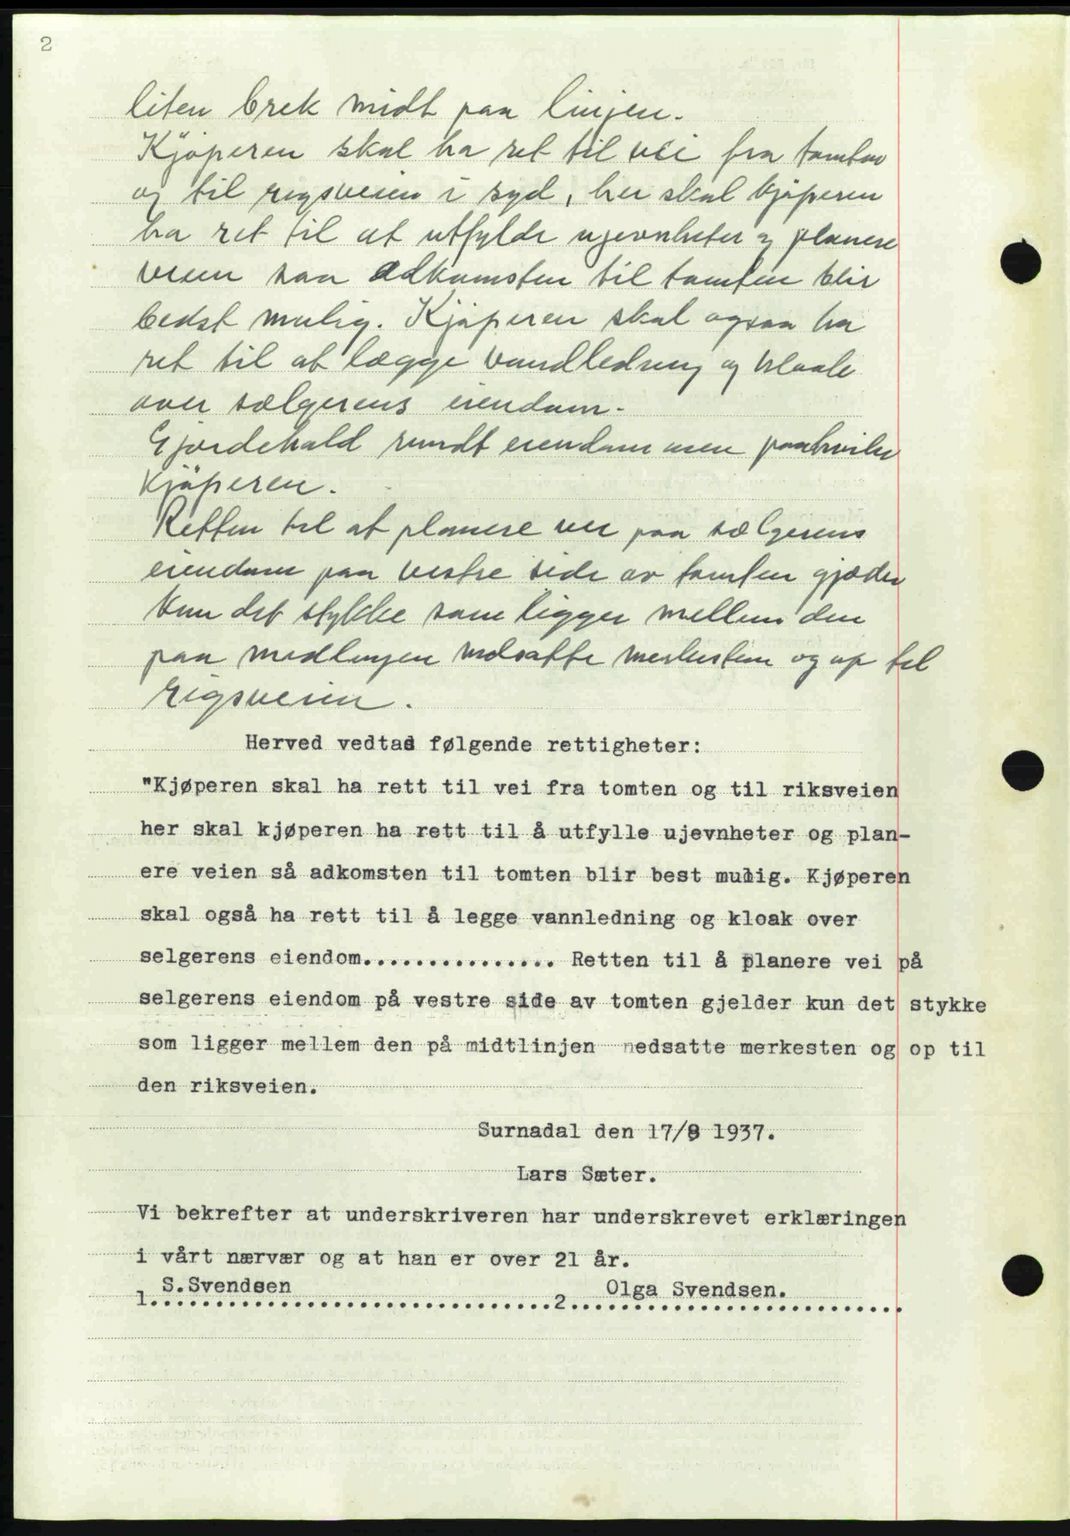 2
liten brek midt paa linjen.
Kjöperen skal ha ret til vei fra tomten
og til rigsveien i syd, her skal kjöperen
ha ret til at utfylde ujevnheter og planere
veien saa adkomsten til tomten blir
bedst mulig. Kjöperen skal ogsaa ha
ret til at lægge vandledning og kloak
over sælgerens eiendom.
Gjerdehold rundt eiendommen paahviler
kjöperen.
Retten til at planere vei paa sælgerens
eiendom paa vestre side av tomten gjælder
kun det stykke som ligger mellem den
paa midtlinjen nedsatte merkesten og op til
rigsveien.
Herved vedtas følgende rettigheter:
"Kjøperen skal ha rett til vei fra tomten og til riksveien
her skal kjøperen ha rett til å utfylle ujevnheter og plan-
ere veien så adkomsten til tomten blir best mulig. Kjøperen
skal også ha rett til å legge vannledning og kloak over
selgerens eiendom............... Retten til å planere vei på
selgerens eiendom på vestre side av tomten gjelder kun det stykke
som ligger mellem den på midtlinjen nedsatte merkesten og op til
den riksveien.
Surnadal den 17/8 1937.
Lars Sæter.
Vi bekrefter at underskriveren har underskrevet erklæringen
i vårt nærvær og at han er over 21 år.
S.Svendsen Olga Svendsen.
1...............................2..........................